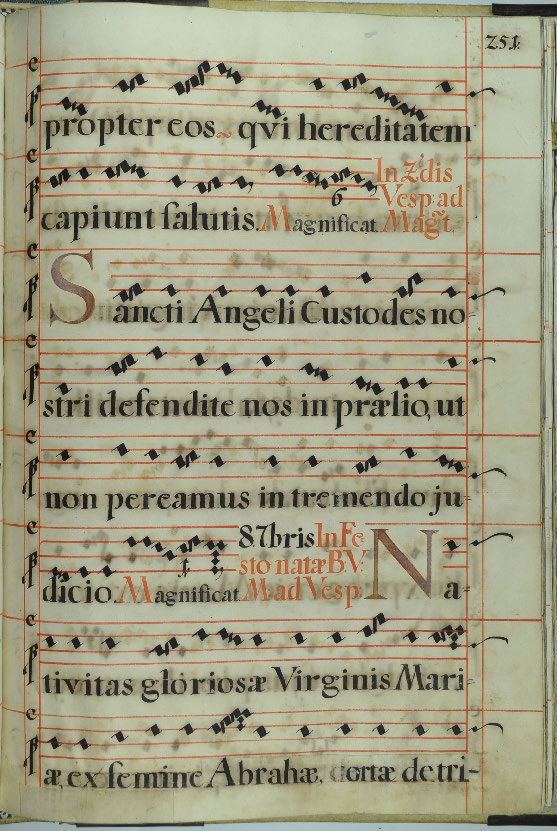 251.
propter eos qvi hereditatem
capiunt salutis. Magnificat. In 2.dis Vesp: ad Magt.
6
Sancti Angeli Custodes no
stri defendite nos in prælio, ut
non pereamus in tremendo ju-
dicio. Magnificat. 8 7bris In Fe
sto natæ B.V.
M. ad Vesp:
1.
Na-
tivitas gloriosæ Virginis Mari
æ, ex semine Abrahæ, ortæ de tri-